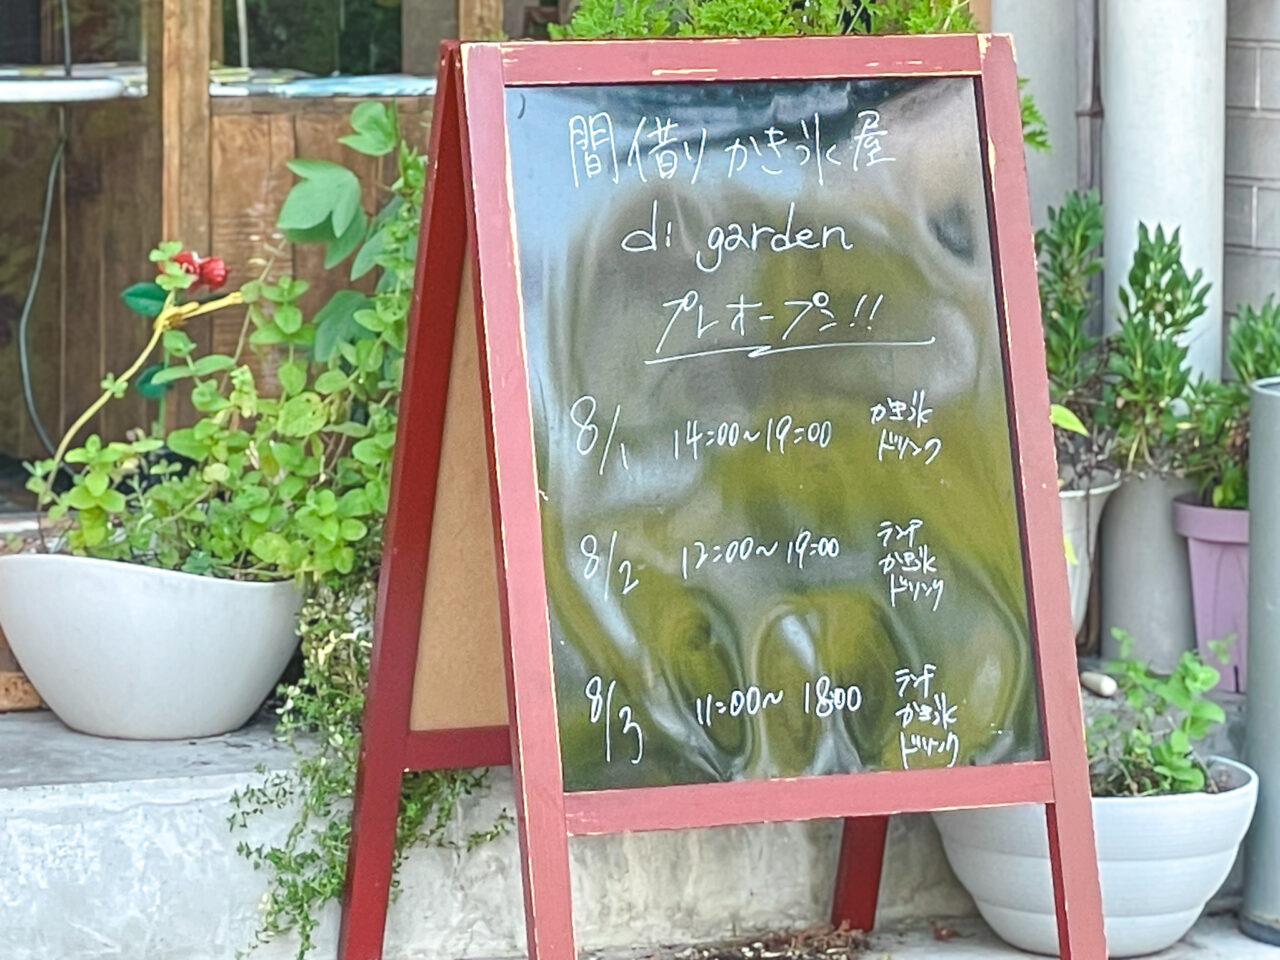 間借りかき氷屋
di garden
プレオープン!!
8/1 14:00~19:00 かき氷
ドリンク
8/2 12:00~19:00 ランチ
かき氷
ドリンク
8/3 11:00~18:00 ランチ
かき氷
ドリンク